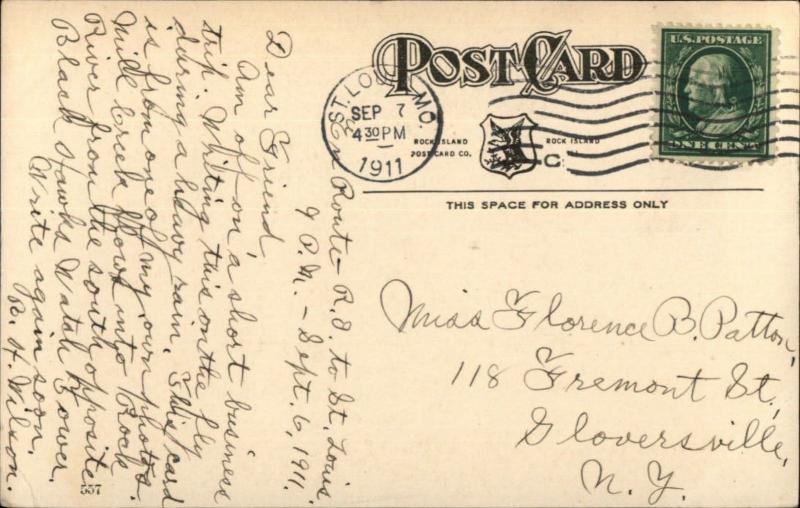 POST CARD
ST. LOUIS, MO.
SEP 7
4 30 PM
1911
U.S. POSTAGE
ONE CENT
ROCK ISLAND
POST CARD CO.
ROCK ISLAND
THIS SPACE FOR ADDRESS ONLY
En Route - R.I. to St. Louis
9 P.M. - Sept. 6, 1911.
Dear Friend,
Am off on a short business
trip. Writing this on the fly
during a heavy rain. This card
is from one of my own photos.
Mill Creek flows into Rock
River from the south opposite
Black Hawks Watch Tower.
Write again soon,
R. H. Wilson.
Miss Florence B. Patton,
118 Fremont St.,
Gloversville,
N.Y.
557